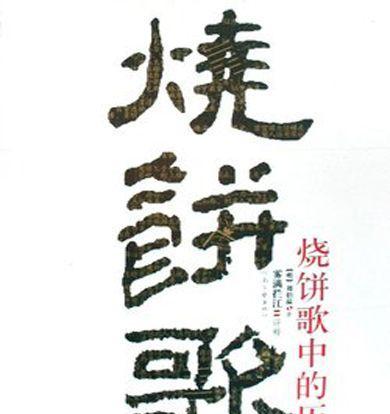 燒餅歌
烧饼歌中的历
雾满拦江